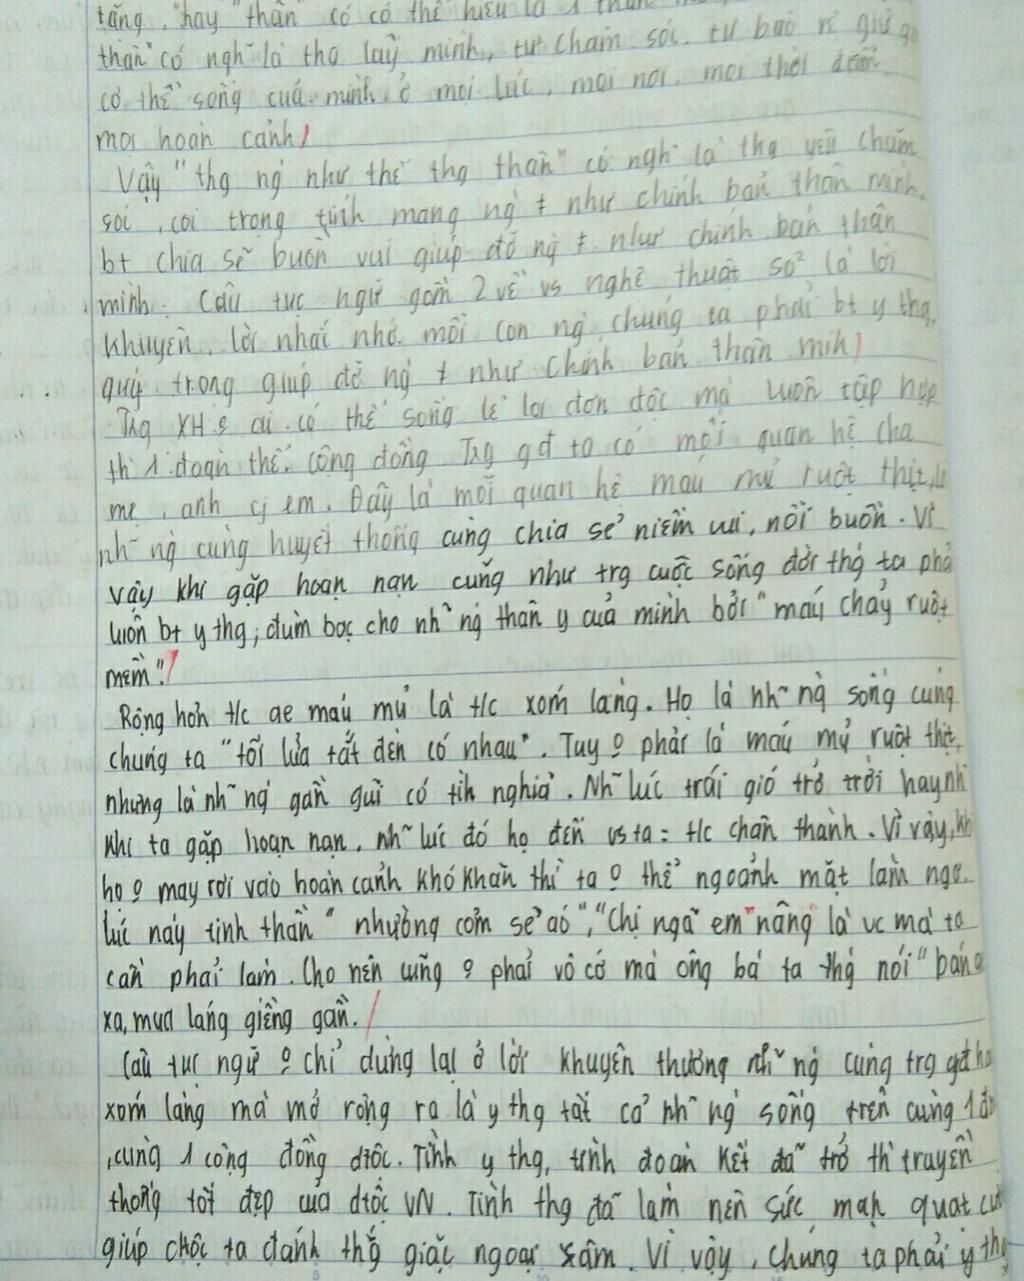 tăng, "hay "thân" có có thể hiểu là 1 thân
thân" có ngh~ là thg lấy mình, tự chăm sóc. tự bảo vệ giữ gìn
cơ thể sống của mình ở mọi lúc, mọi nơi, mọi thời điểm,
mọi hoàn cảnh/
Vậy "thg ng như thể thg thân" có ngh~ là thg yêu chăm
sóc, coi trọng tính mạng ng ≠ như chính bản thân mình,
bt chia sẻ buồn vui giúp đỡ ng ≠ như chính bản thân
mình. Câu tục ngữ gồm 2 vế vs nghệ thuật so² là lời
khuyên, lời nhắc nhở mỗi con ng chúng ta phải bt y thg,
quý trọng giúp đỡ ng ≠ như chính bản thân mih/
Trg XH o ai có thể sống lẻ loi đơn độc mà luôn tập hợp
th 1 đoàn thể, cộng đồng. Trg gđ ta có mối quan hệ cha
mẹ, anh cj em. Đây là mối quan hệ máu mủ ruột thịt, là
nh~ ng cùng huyết thống cùng chia sẻ niềm vui, nỗi buồn. Vì
vậy khi gặp hoạn nạn cũng như trg cuộc sống đời thg ta phả
luôn bt y thg, đùm bọc cho nh~ ng thân y của mình bởi "máu chảy ruột
mềm"./
Rộng hơn t/c ae máu mủ là t/c xóm làng. Họ là nh~ ng sống cùng
chúng ta "tối lửa tắt đèn có nhau". Tuy o phải là máu mủ ruột thịt,
nhưng là nh~ ng gần gũi có tìh nghĩa. Nh~ lúc trái gió trở trời hay nh~
khi ta gặp hoạn nạn, nh~ lúc đó họ đến vs ta = t/c chân thành. Vì vậy, kh
họ o may rơi vào hoàn cảnh khó khăn thì ta o thể ngoảnh mặt làm ngơ.
lúc này tinh thần "nhường cơm sẻ áo", "Chị ngã em nâng" là vc mà ta
cần phải làm. Cho nên cũng o phải vô cớ mà ông bà ta thg nói "bán a
xa, mua láng giềng gần./
Câu tục ngữ o chỉ dừng lại ở lời khuyên thương nh~ ng cùng trg gđ ha
xóm làng mà mở rộng ra là y thg tất cả nh~ ng sống trên cùng 1 đấ
,cùng 1 cộng đồng dtộc. Tình y thg, tình đoàn kết đã trở th truyền
thống tốt đẹp của dtộc VN. Tình thg đã làm nên sức mạh quật cư
giúp chộc ta đánh thắg giặc ngoại xâm. Vì vậy, chúng ta phải y thg